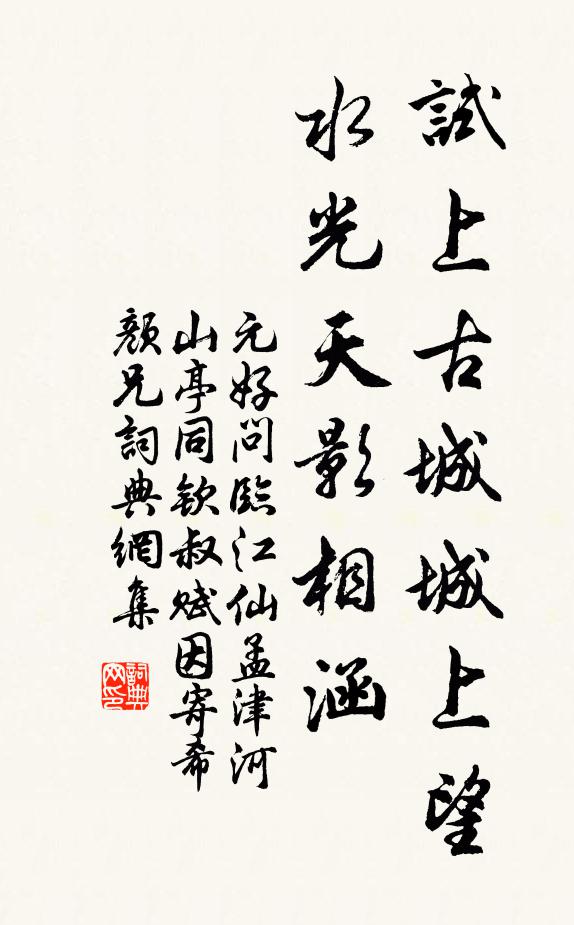 試上古城城上望
水光天影相涵
元好問臨江仙孟津河
山亭同欽叔賦因寄希
顏兄詞典網集
詞典網印